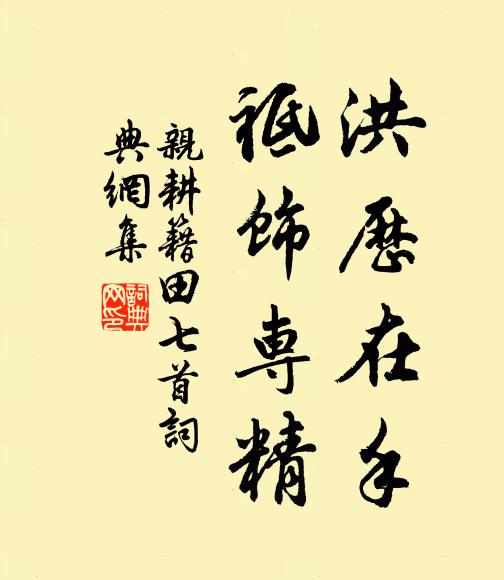 洪歷在手
祗飾專精
親耕籍田七首詞
典網集
詞典網印